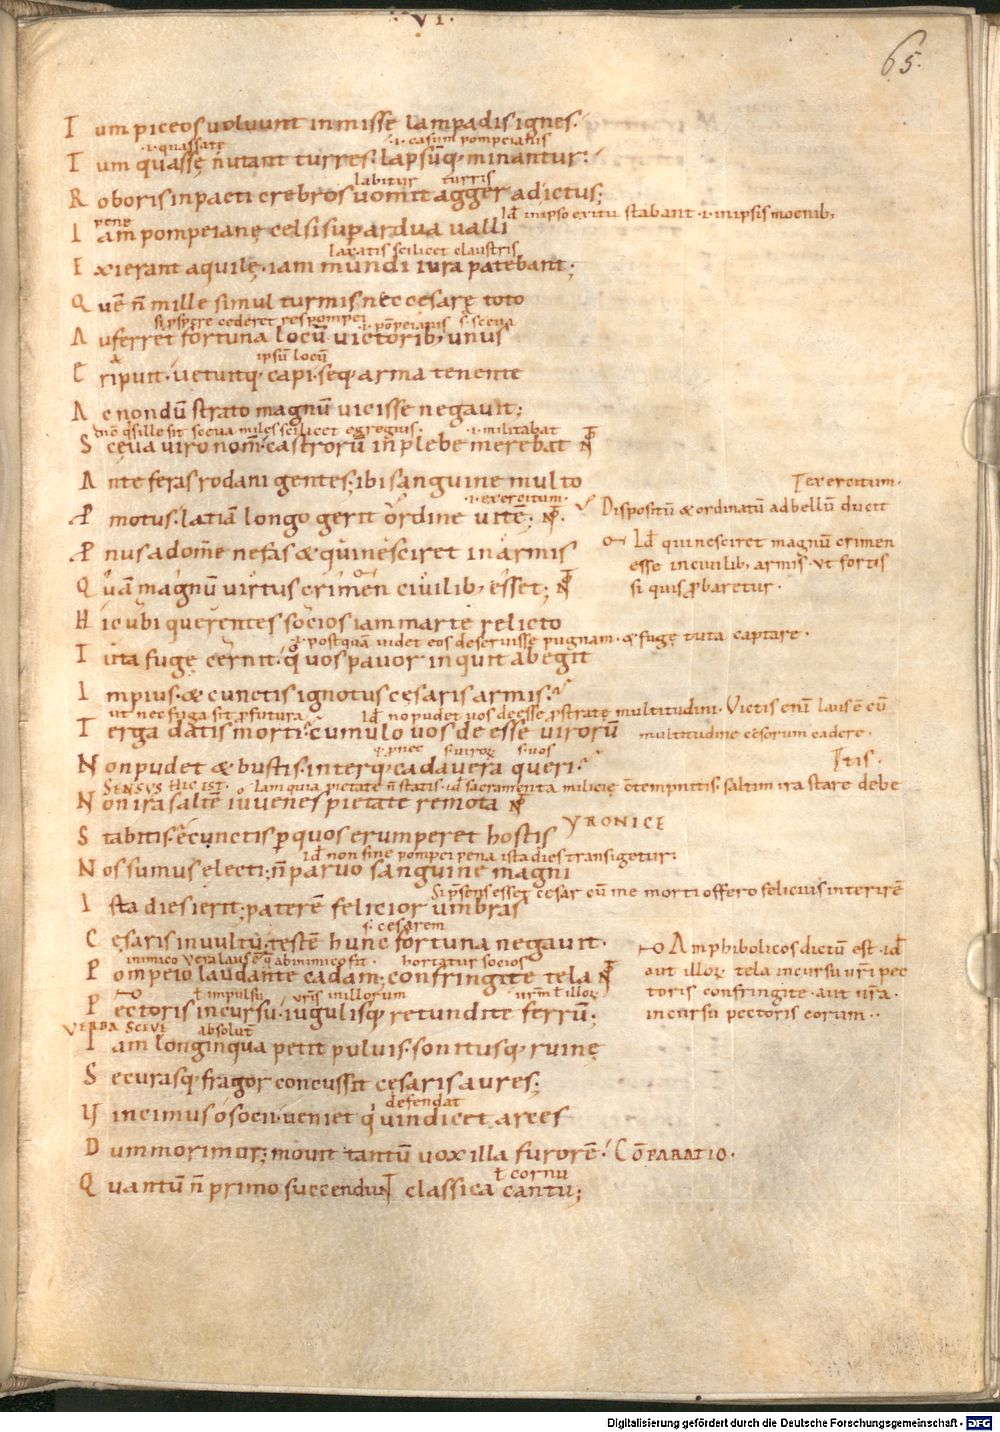 ·VI·
65.
Tum piceos uoluunt inmisse lampadis ignes.
·i· quassatę ·i· casum pompeianis
Tum quassę nutant turres. lapsūq; minantur.
labitur turris
Roboris inpacti crebros uomit agger ad ictus;
pene Id in ipso exitu stabant ·i· in ipsis moenib;
Iam pompeianę celsi sup ardua ualli
laxatis scilicet claustris
Exierant aquilę. iam mundi iura patebant;
Quē ñ mille simul turmis nec cesare toto
si pspere cederet res pompei ·i· pōpeianis s· sceua
Auferret fortuna locū uictorib; unus
ipsū locū
Eripuit. uetuitq; capi. seq; arma tenente
Ac nondū strato magnū uicisse negauit;
sceua miles scilicet egregius. ·i· militabat
Sceua uiro nom̄. castrorū in plebe merebat
Ante feras rodani gentes; ibi sanguine multo
·i· exercitum· exercitum.
Pmotus. latiā longo gerit ordine uitē;
Dispositū & ordinatū ad bellū ducit
Pnus ad om̄e nefas & qui nesciret in armis
Id qui nesciret magnū crimen
esse in ciuilib; armis. ut fortis
Quā magnū uirtus crimen ciuilib; esset;
si quis pbaretur.
Hic ubi querentes socios iam marte relicto
·i· postquā uidet eos deseruisse pugnam. & fugę tuta captare.
Tuta fugę cernit. quos pauor inquit abegit
Impius. & cunctis ignotus cęsaris armis.
ut nec fuga sit pfutura Id no pudet uos deesse pstratę multitudini. Victis enī laus ē cū
Terga datis morti. cumulo uos de esse uirorū
multitudine cesorum cadere.
s· uiror s· uos
Non pudet & bustis. interq; cadauera queri.
Itis.
SENSVS HIC EST. Iam quia pietate ñ statis. id sacramenta milicię cōtempnitis. saltim ira stare debe
Non ira saltē iuuenes pietate remota
Stabitis. e cunctis p quos erumperet hostis
YRONICE
Id non sine pompei pena ista dies transigetur.
Nos sumus electi; ñ paruo sanguine magni
Si psens esset cesar cū me morti offero felicius interirē
Ista dies ierit; peterē felicior umbras
s· cesarem
Cesaris in uultu; testē hunc fortuna negauit.
inimico uera laus ē q̄ ab inimico fit. hortatur socios
Pompeio laudante cadam; confringite tela
Amphibolicos dictū est. id
aut illor tela incursu ur̄i pec
ł impulsu ur̄is ł illorum ur̄m ł illor
Pectoris incursu. iugulisq; retundite ferrū;
toris confringite. aut ur̄a.
incursu pectoris eorum..
VERBA SCEVĘ absolut̄
Iam longinqua petit puluis. sonitusq; ruinę
Securasq; fragor concussit cesaris aures;
defendat
Vincimus ó socii. ueniet qui uindicet arces
Dum morimur; mouit tantū uox illa furorē. CŌPARATIO.
ł cornu
Quantū ñ primo succendunt classica cantu;
Digitalisierung gefördert durch die Deutsche Forschungsgemeinschaft - DFG